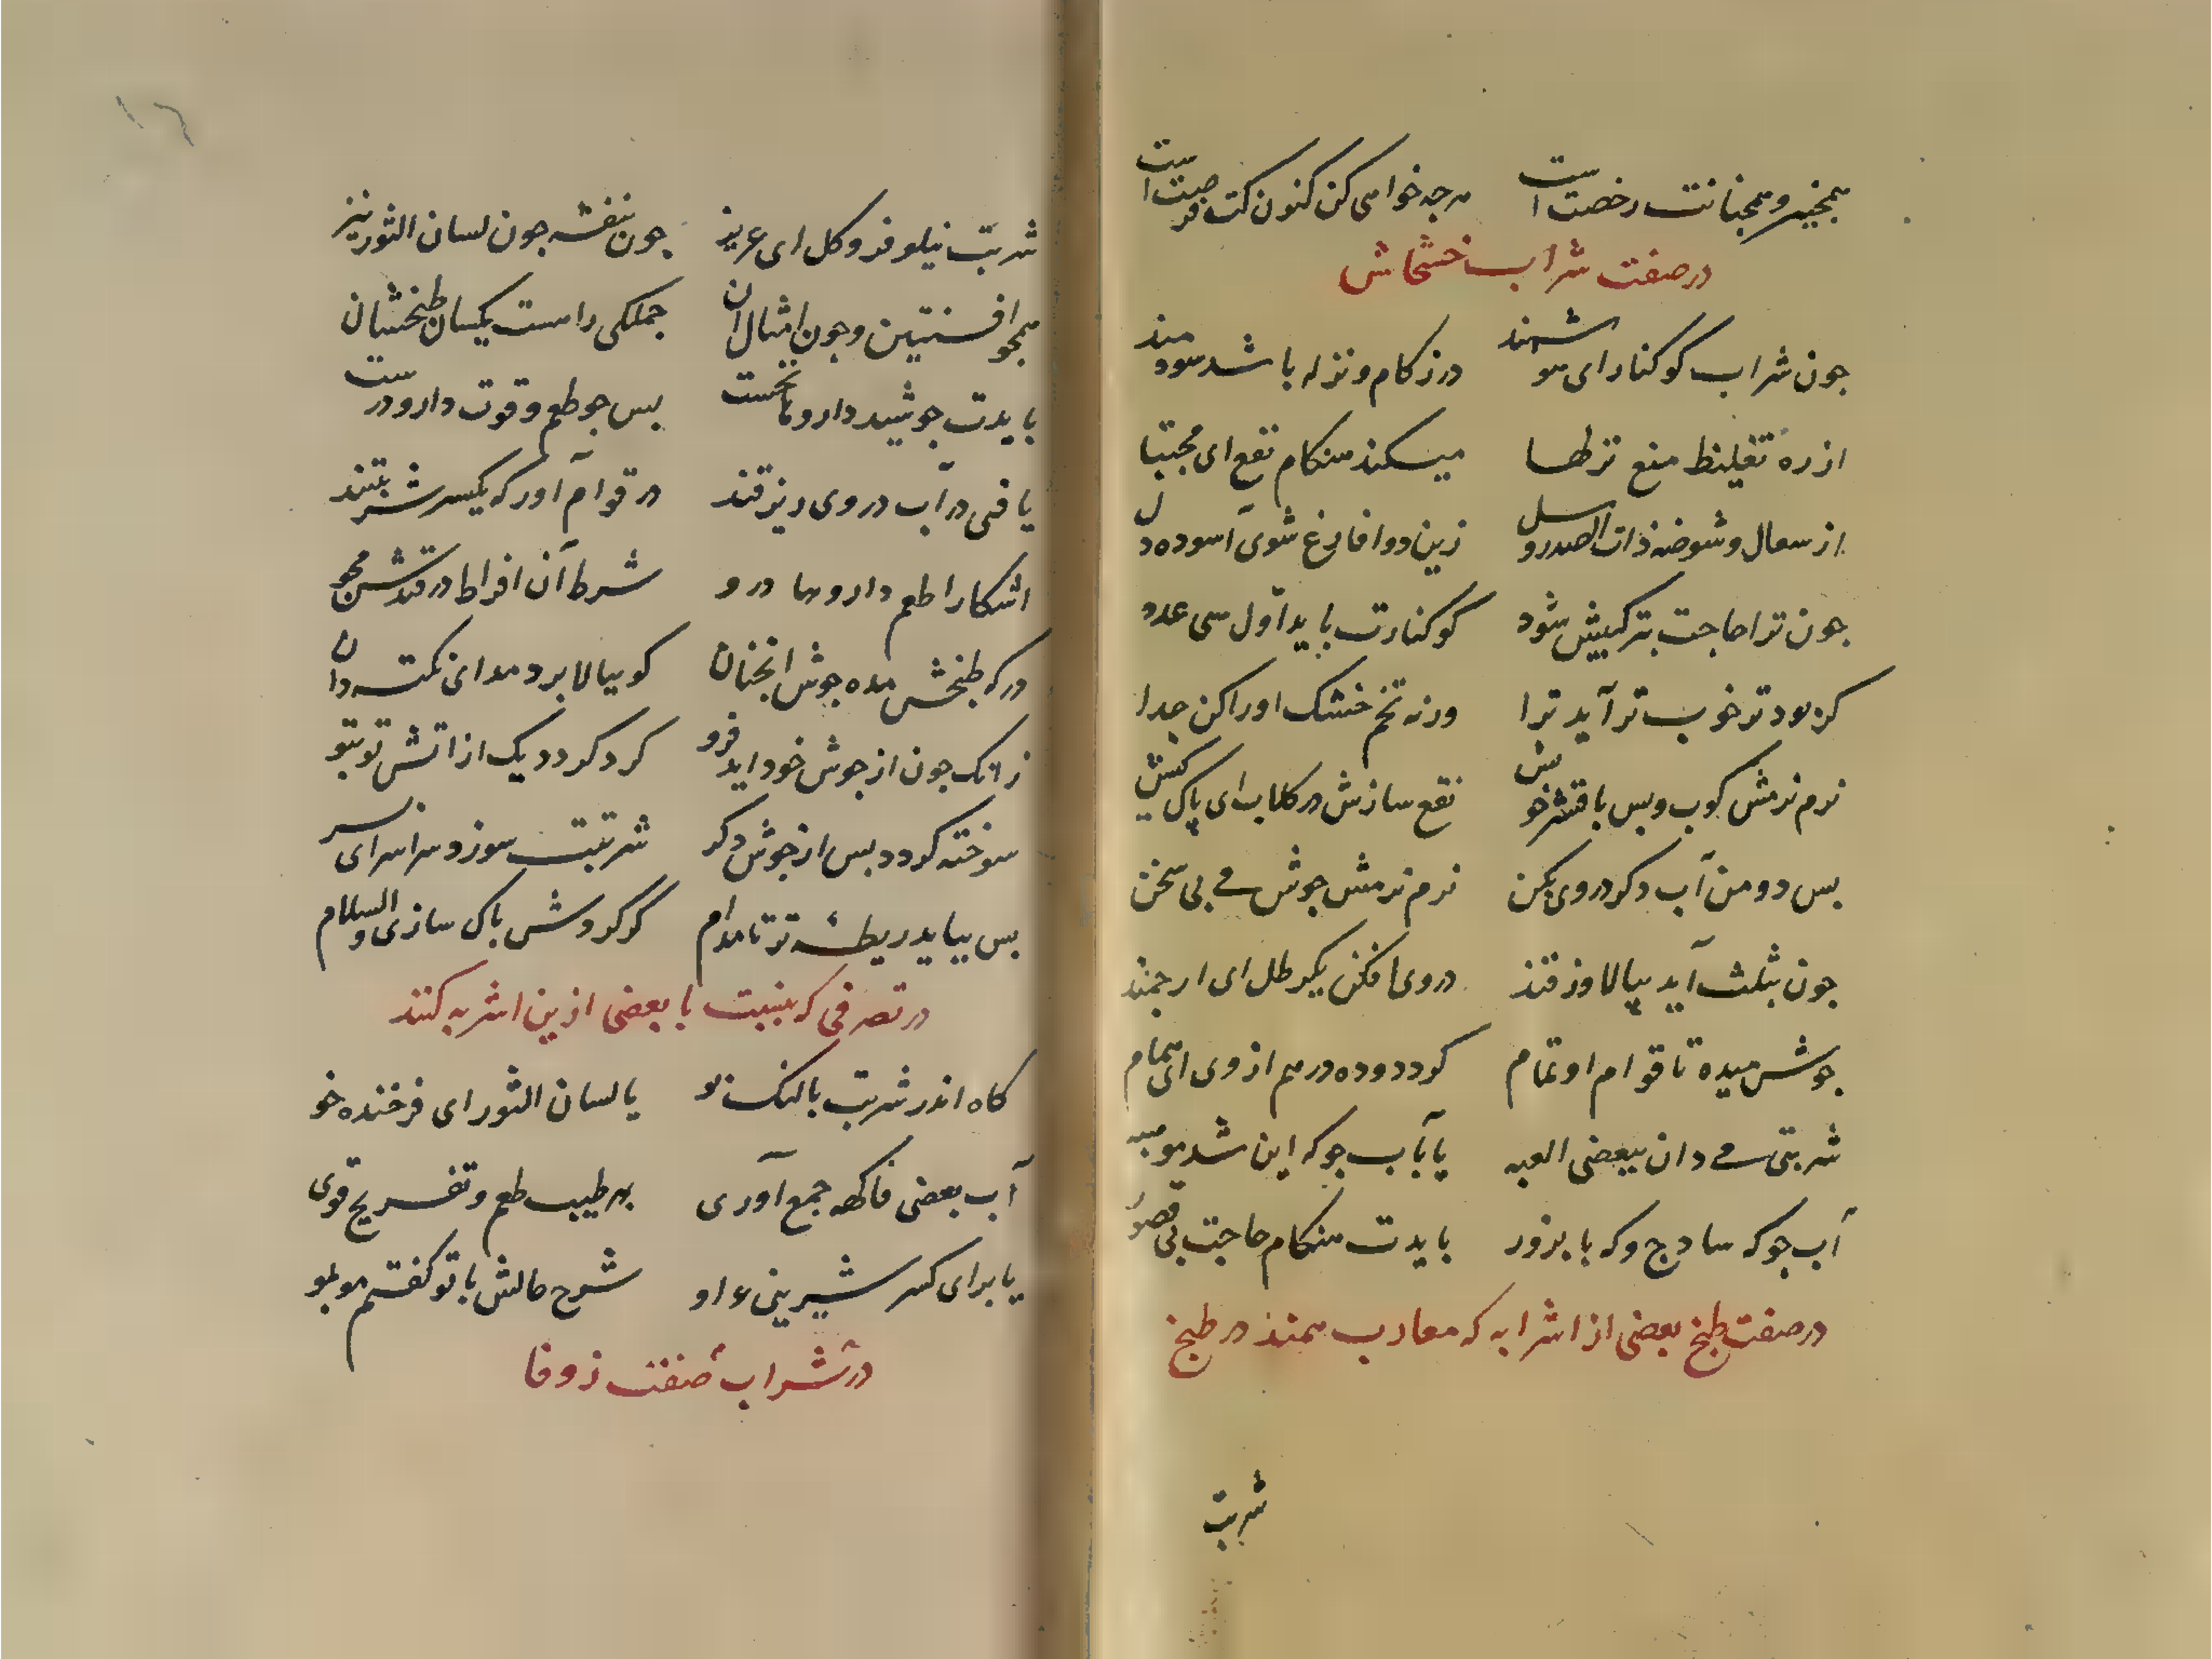 همچنین و همچنانت رخصت است هرچه خواهی کن کنون کت فرصت است
در صفت شراب خشخاش
چون شراب کوکنار ای هوشمند در زکام و نزله باشد سودمند
از ره تغلیظ منع نزلها میکند هنکام نقع ای مجتبا
از سعال و شوصه ذات الصدر و سل زین دوا فارغ شوی آسوده دل
چون ترا حاجت بترکیبش شود کوکنارت باید اول سی عدد
کر بود تر خوب تر آید ترا ورنه تخم خشک او را کن جدا
نرم نرمش کوب و بس با قشر خوش نقع سازش در کلاب ای پاک کیش
بس دو من آب دکر در وی بکن نرم نرمش جوش می بی سخن
چون بثلث آید بپالا وز قند در وی افکن یکرطل ای ارجمند
جوش میده تا قوام او تمام کردد و ده درهم از وی ای همام
شربتی می دان ببعضی العبه یا بآب جو که این شد
آب جو که ساده ج و که با بزور بایدت هنکام حاجت بی قصور
در صفت طبخ بعضی از اشرابه که معارب همند در طبخ
شربت
شربت نیلوفر و کل ای عزیز چون بنفشه چون لسان الثور نیز
همچو افسنتین و چون امثال آن جملکی را هست یکسان طبخشان
بایدت جوشید دارو تا نخست بس چو طعم و قوت دارو درست
یافتی در آب در وی ریز قند در قوام آور که یکسر شربتند
اشکارا طعم داروها درو شرط آن افراط در قندش مجو
در که طبخش مده جوش انچنان کو ببالا بر دمد ای نکته دان
زانک چون از جوش خود اید فرو کرد کردد دیک از اتش تو بتو
سوخته کردد بس از جوش دکر شربتت سوزد سراسر ای سر
بس بباید ریطه تر تا مدام کر کروش پاک سازی والسلام
در تصرفی که بنسبت با بعضی ازین اشربه کنند
کاه اندر شربت بالنک نو یا لسان الثور ای فرخنده خو
آب بعضی فاکهه جمع آوری بهر طیب طعم و تفریح قوی
یا برای کسر شیرینیء او شرح حالش با تو کفتم موبمو
در شراب صفت زوفا